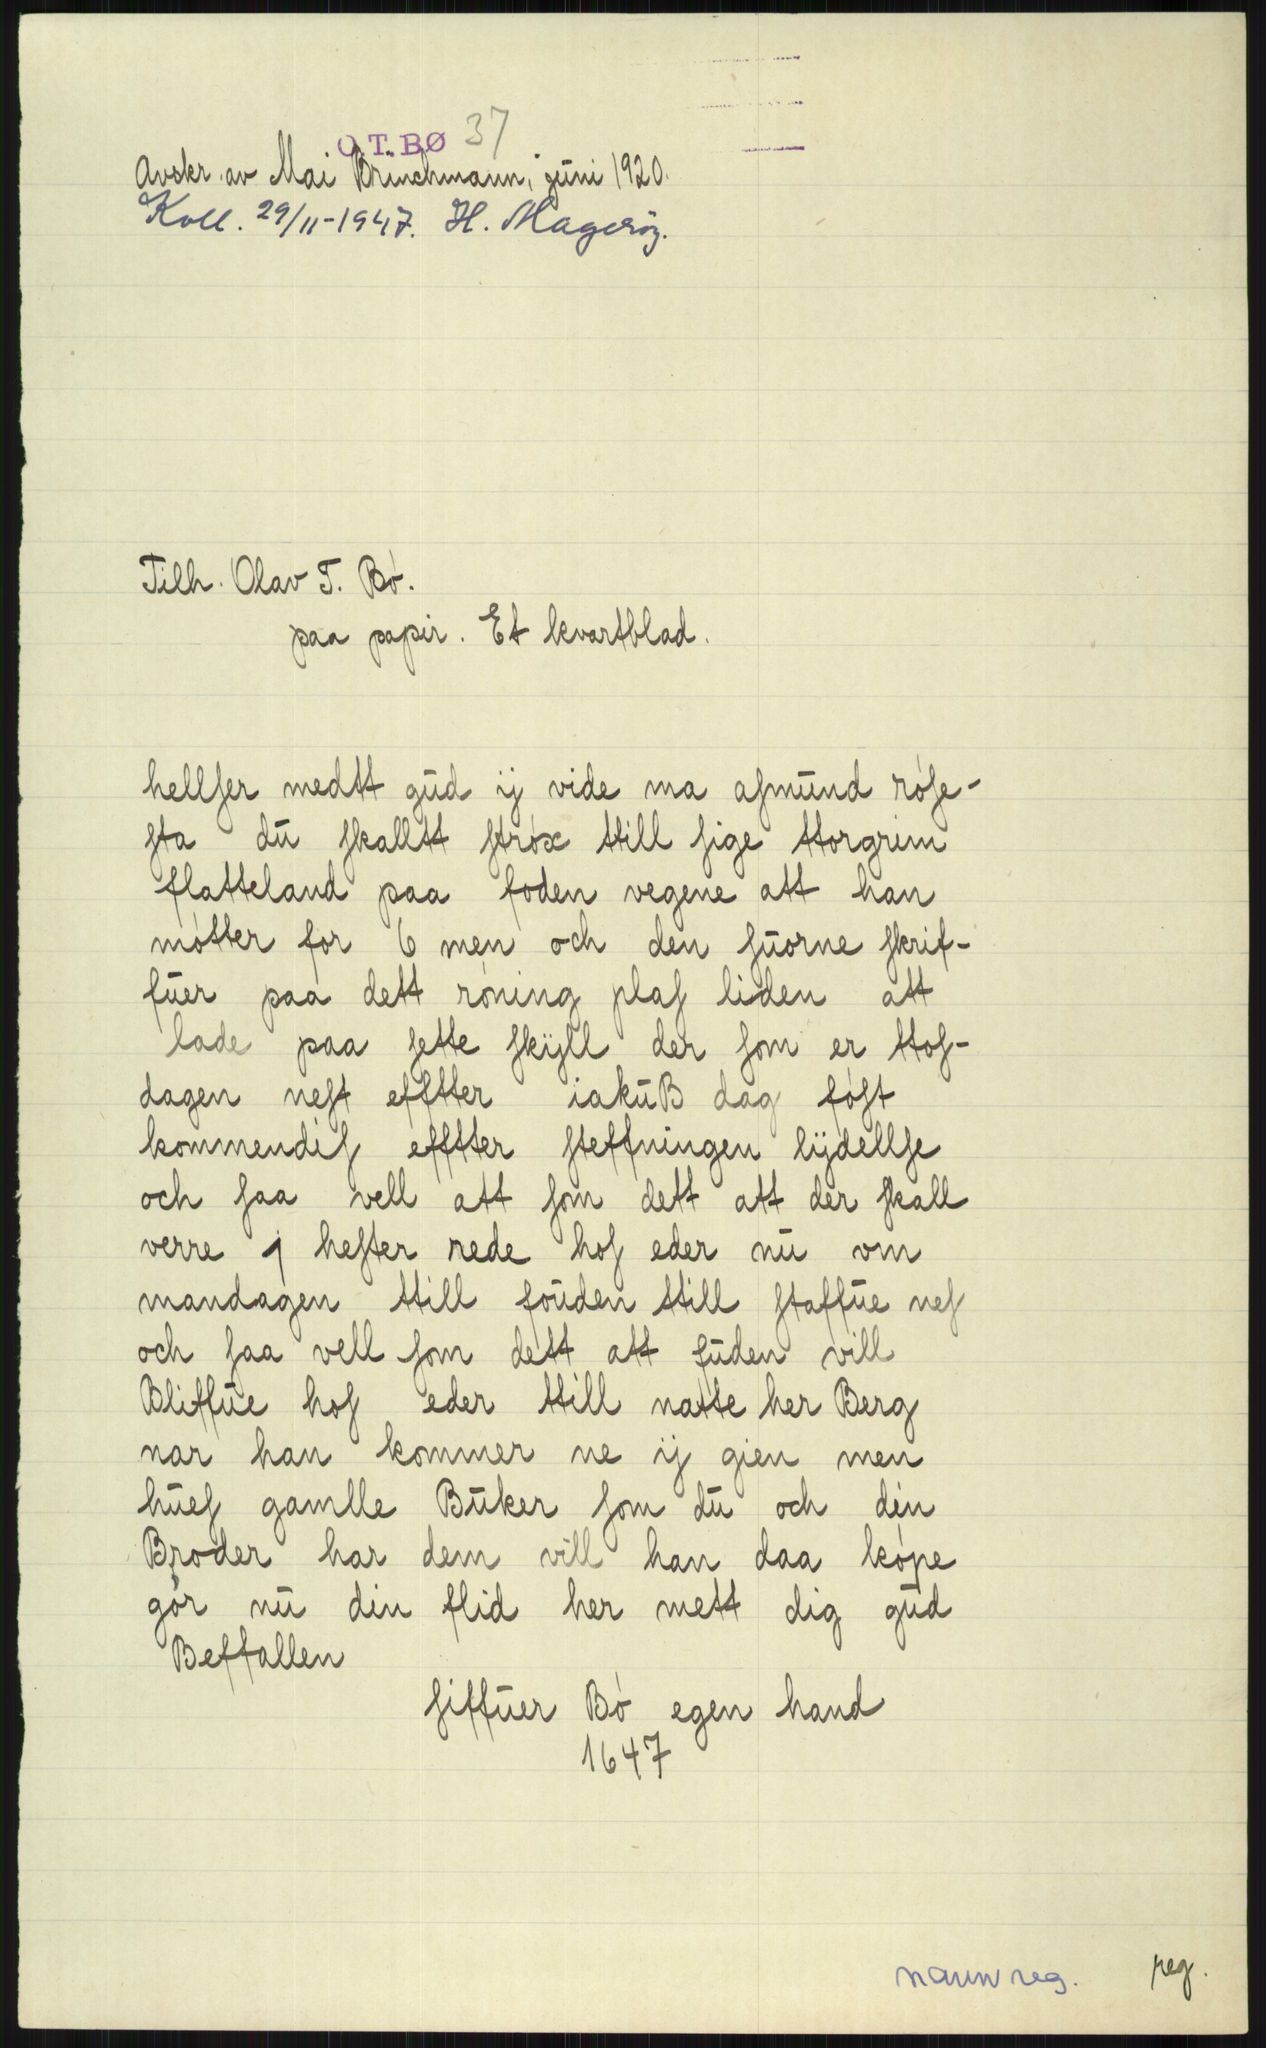 O.T.BØ 37
Avskr. av Mai Brinchmann, juni 1920.
Koll. 29/11-1947. H. Magerøy.
Tilh. Olav T. Bø.
paa papir. Et kvartblad.
hellſer medtt gud ij vide ma aſmund röſe-
ſta du ſkalltt ſtrox till ſige ttorgrim
flatteland paa foden vegene att han
mötter for 6 men och den ſuorne ſkrif-
fuer paa dett röning plaſ liden att
lade paa ſette ſkyll der ſom er ttoſ-
dagen neſt effter iakuB dag föſt
kommendiſ effter ſteffningen lydellſe
och ſaa vell att ſom dett att der ſkall
verre 1 heſter rede hoſ eder nu om
mandagen till fouden till ſtaffue neſ
och ſaa vell ſom dett att fuden vill
Bliffue hoſ eder till natte her Berg
nar han kommer ne ij gien men
hueſ gamlle Buker ſom du och din
Broder har dem vill han daa köpe
gör nu din flid her mett dig gud
Beffallen
ſiffuer Bö egen hand
1647
navnreg. reg.